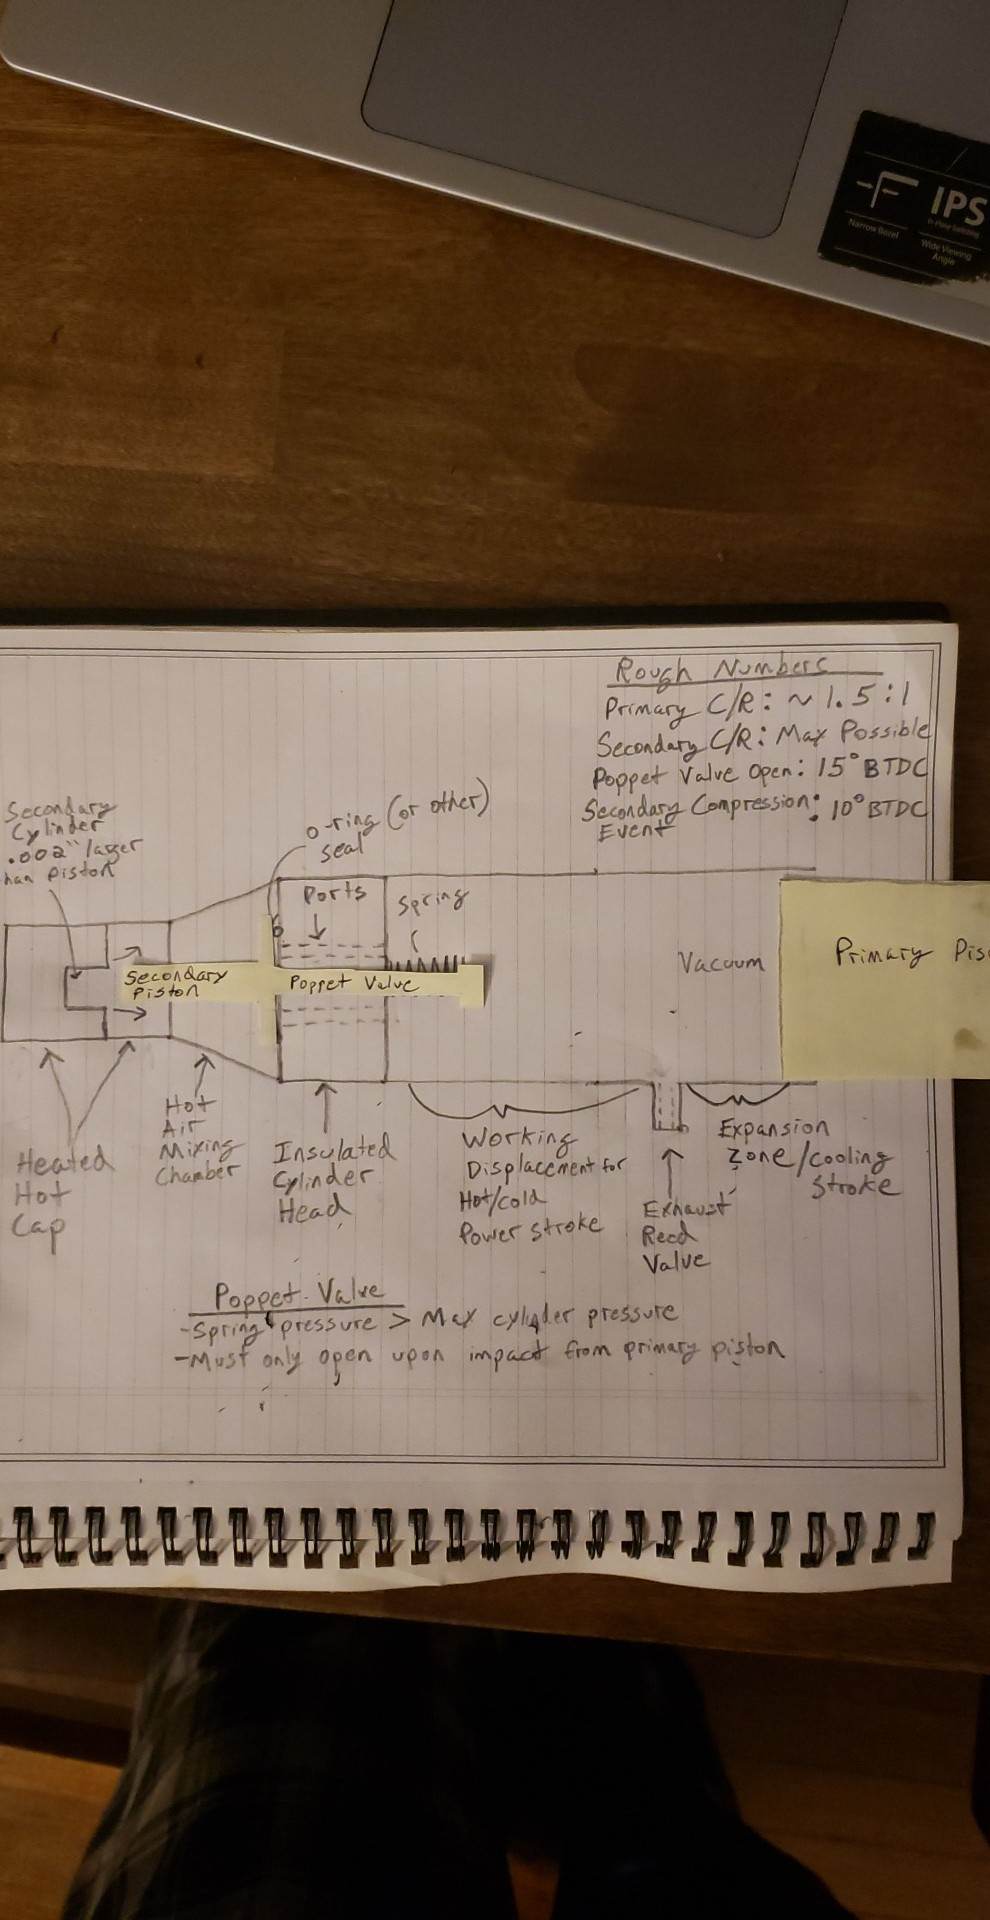 IPS
In-Plane Switching
Narrow Bezel
Wide Viewing
Angle
Rough Numbers
Primary C/R: ~ 1.5:1
Secondary C/R: Max Possible
Poppet Valve Open: 15° BTDC
Secondary Compression: 10° BTDC
Event
Secondary
Cylinder
.002" larger
han Piston
o-ring (or other)
seal
Ports
Spring
Secondary
Piston
Poppet Valve
Vacuum
Primary Pis
Heated
Hot
Cap
Hot
Air
Mixing
Chamber
Insulated
Cylinder
Head
Working
Displacement for
Hot/cold
Power stroke
Exhaust
Reed
Valve
Expansion
Zone/cooling
Stroke
Poppet Valve
-Spring pressure > Max cylinder pressure
-Must only open upon impact from primary piston